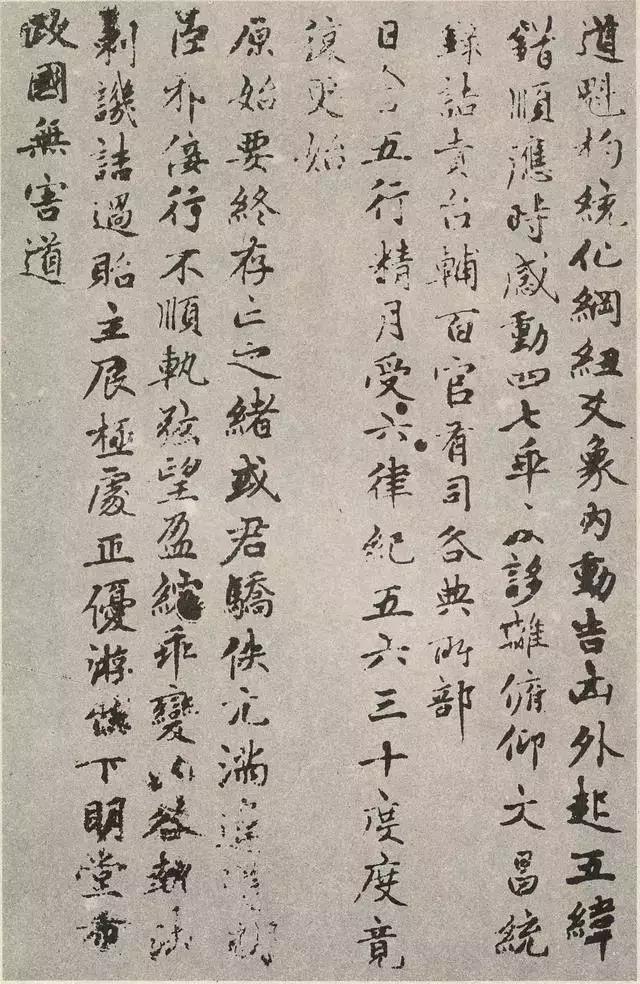 道魁杓統化綱紐爻象內動吉凶外起五緯
錯順應時感動四七乖以誃離俯仰文昌統
錄詰責台輔百官有司各典所部
日合五行精月受六律紀五六三十度度竟
復更始
原始要終存亡之緒或君驕佚亢滿違
臣邪佞行不順軌弦望盈縮乖變凶咎執法
刺譏詰過貽主辰極處正優游任下明堂布
政國無害道